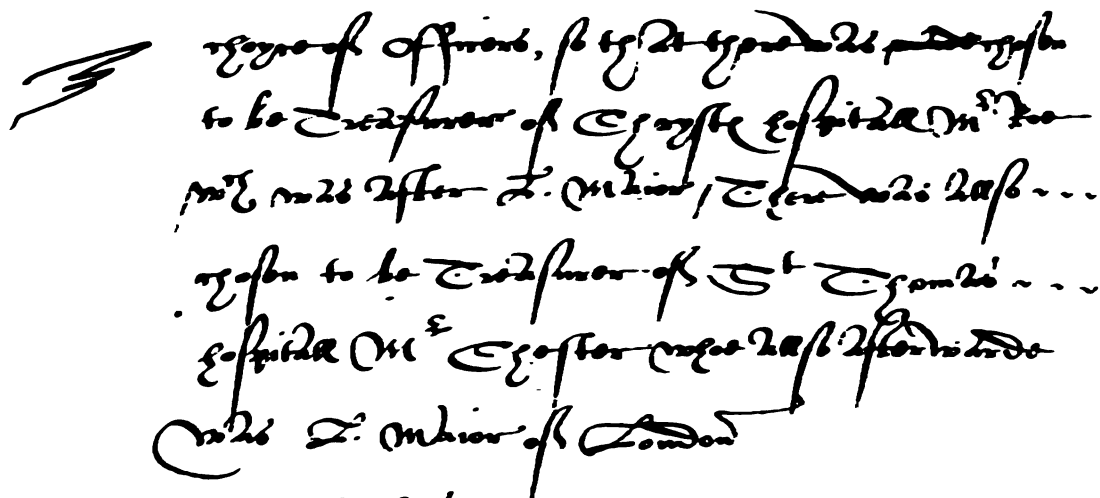 choyce of Officers, so that there was chosen
to be Treasurer of Chrysts hospitall Mr. Roe
wch was after L. Maior, There was allso
chosen to be Treasurer of St Thomas
hospitall Mr Chester whoe allso afterwarde
was L. Maior of London